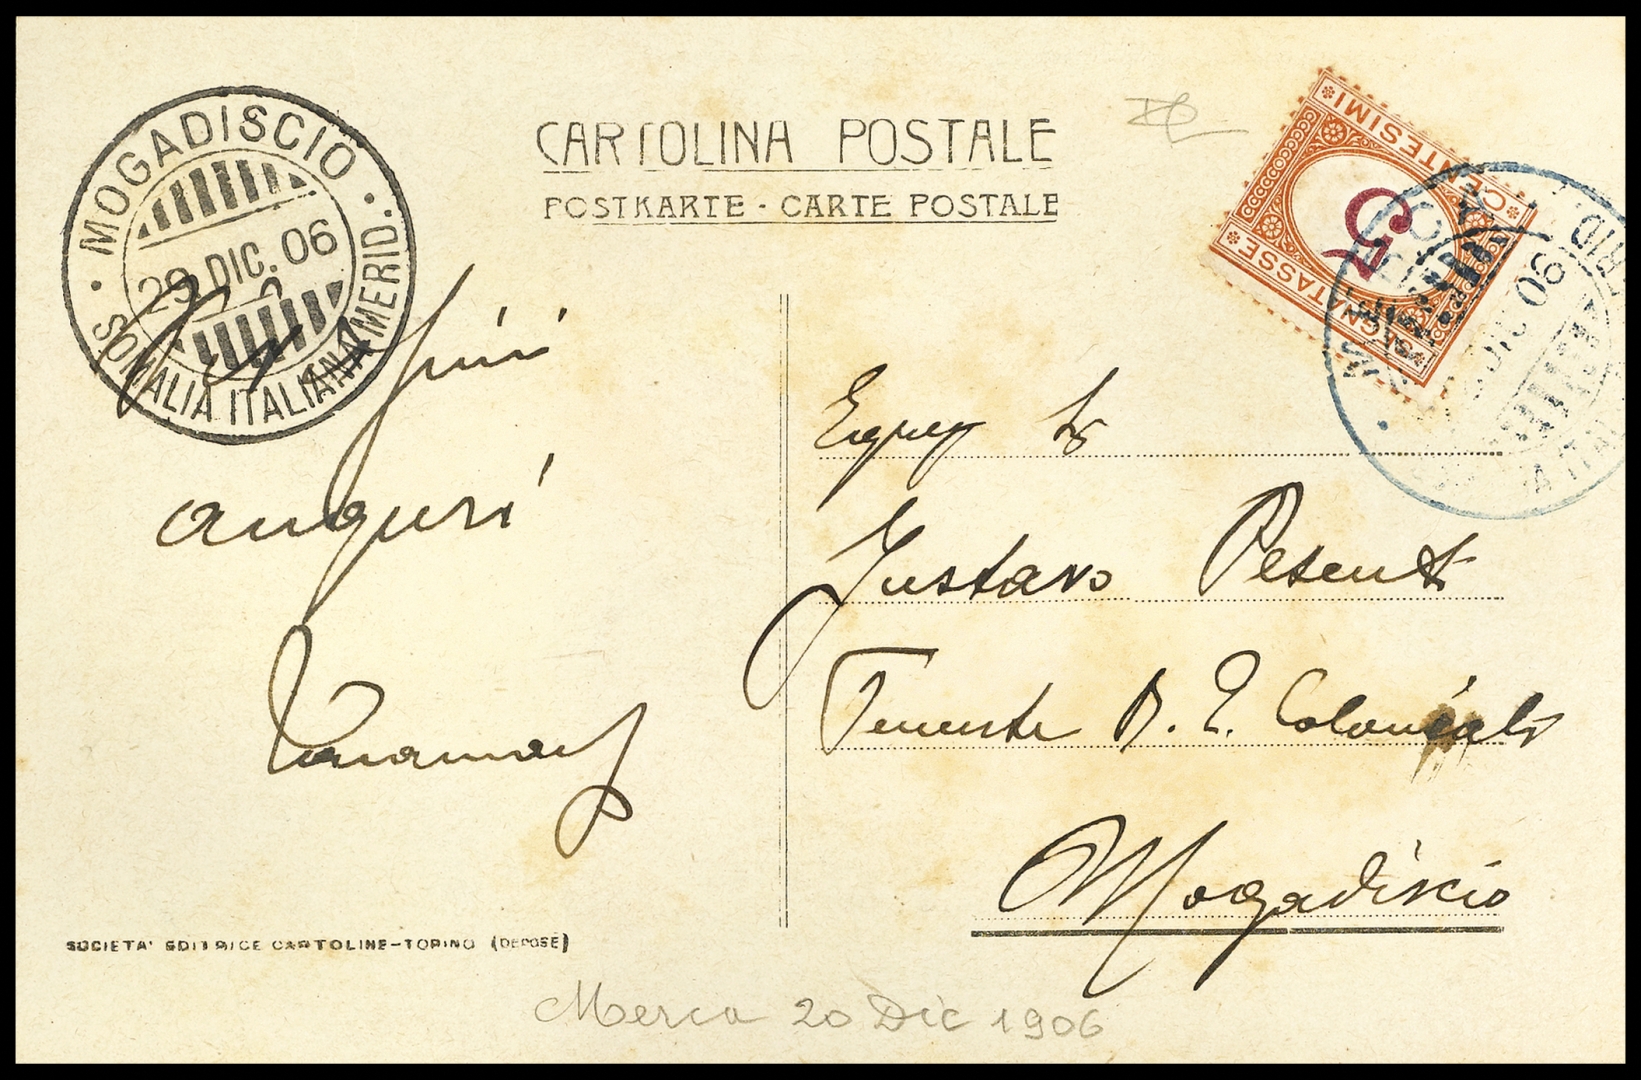 CARTOLINA POSTALE
POSTKARTE - CARTE POSTALE
MOGADISCIO
29 DIC. 06
SOMALIA ITALIANA MERID.
SEGNATASSE
5
CENTESIMI
06
auguri
Gustavo Pesenti
Tenente R. E. Coloniale
Mogadiscio
SOCIETA' EDITRICE CARTOLINE-TORINO (DEPOSÉ)
Merca 20 Dic 1906